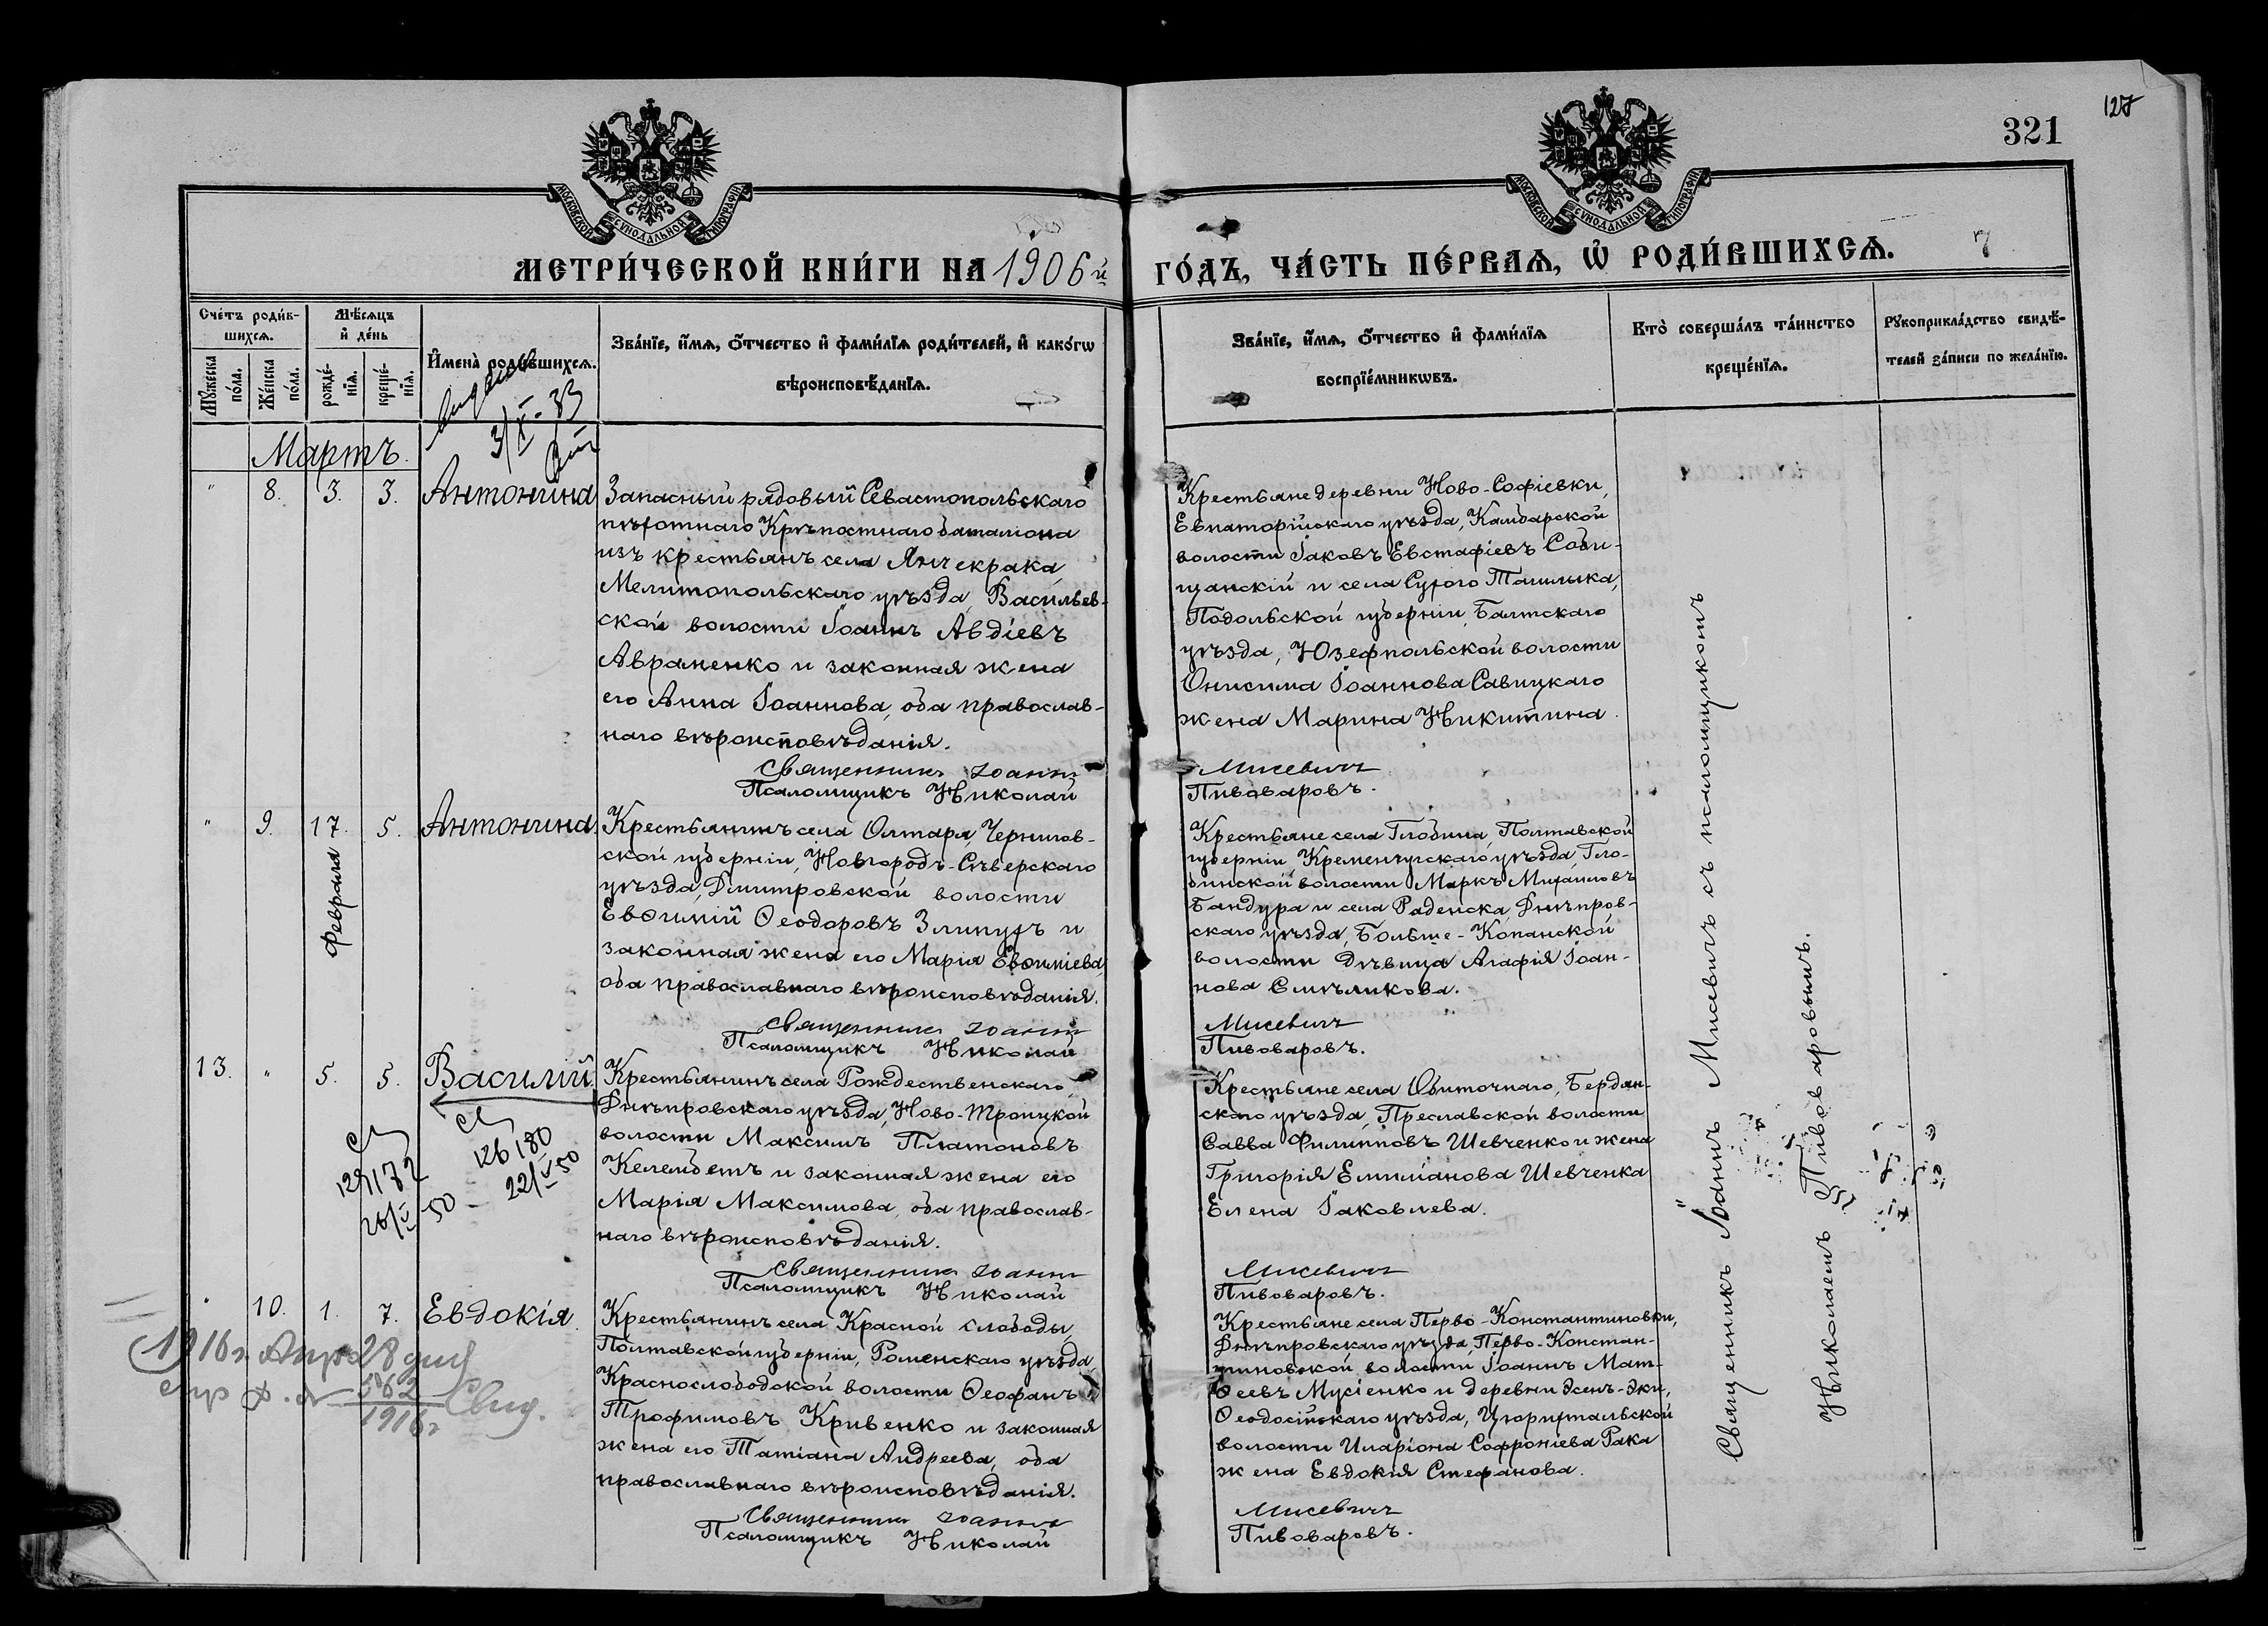 127
321
МОСКОВСКОЙ СѴНОДАЛЬНОЙ ТИПОГРАФІИ
МОСКОВСКОЙ СѴНОДАЛЬНОЙ ТИПОГРАФІИ
МЕТРИ́ЧЕСКОЙ КНИ́ГИ НА 1906й
ГО́ДЪ, ЧА́СТЬ ПЕ́РВАѦ, Ѽ РОДИ́ВШИХСѦ.
7
Сче́тъ роди́в-
шихсѧ.
Мѣ́сѧцъ
и҆ де́нь
Мꙋ́жеска
по́ла.
Же́нска
по́ла.
рожде́-
нїѧ.
креще́-
нїѧ.
И҆мена̀ роди́вшихсѧ.
Зва́нїе, и҆́мѧ, ѻ҆́тчество и҆ фами́лїѧ роди́телей, и҆ како́гѡ
вѣроисповѣ́данїѧ.
Зва́нїе, и҆́мѧ, ѻ҆́тчество и҆ фами́лїѧ
воспрїе́мникѡвъ.
Кто̀ соверша́лъ та́инство
креще́нїѧ.
Рꙋкоприкла́дство свидѣ́-
телей за́писи по жела́нїю.
3/X-83
Мартъ.
" 8. 3. 3. Антонина
Запасный рядовый Севастопольскаго
пѣхотнаго Крѣпостнаго баталіона
изъ крестьянъ села Янчекрака,
Мелитопольскаго уѣзда, Васильев-
ской волости Іоаннъ Авдіевъ
Авраменко и законная жена
его Анна Іоаннова, оба православ-
наго вѣроисповѣданія.
Священникъ Іоаннъ
Псаломщикъ Николай
Крестьяне деревни Ново-Софіевки,
Евпаторійскаго уѣзда, Камбарской
волости Іаковъ Евстафіевъ Соби-
щанскій и села Сухого Ташлыка,
Подольской губерніи, Балтскаго
уѣзда, Юзефпольской волости
Онисима Іоаннова Савицкаго
жена Марина Никитина.
Мисевичъ
Пивоваровъ.
" 9. 17. 5. Антонина
Февраля
Крестьянинъ села Олтаря, Чернигов-
ской губерніи, Новгородъ-Сѣверскаго
уѣзда, Дмитровской волости
Евѳимій Ѳеодоровъ Злипухъ и
законная жена его Марія Евѳиміева,
оба православнаго вѣроисповѣданія.
Священникъ Іоаннъ
Псаломщикъ Николай
Крестьяне села Глобина, Полтавской
губерніи, Кременчугскаго уѣзда, Гло-
бинской волости Маркъ Михаиловъ
Бандура и села Раденска, Днѣпров-
скаго уѣзда, Больше-Копанской
волости дѣвица Агафія Іоан-
нова Смѣликова.
Мисевичъ
Пивоваровъ.
13. " 5. 5. Василій.
129172
26/V 50
126180
22/V-50
Крестьянинъ села Рождественскаго,
Днѣпровскаго уѣзда, Ново-Троицкой
волости Максимъ Платоновъ
Келембетъ и законная жена его
Марія Максимова, оба православ-
наго вѣроисповѣданія.
Священникъ Іоаннъ
Псаломщикъ Николай
Крестьяне села Обиточнаго, Бердян-
скаго уѣзда, Преславской волости
Савва Филипповъ Шевченко и жена
Григорія Емиліанова Шевченка
Елена Іаковлева.
Мисевичъ
Пивоваровъ.
" 10. 1. 7. Евдокія.
1916 г. Апр 28 дня
562
1916 г. Свид.
Крестьянинъ села Красной Слободы,
Полтавской губерніи, Роменскаго уѣзда,
Краснослободской волости Ѳеофанъ
Трофимовъ Кривенко и законная
жена его Татіана Андреева, оба
православнаго вѣроисповѣданія.
Священникъ Іоаннъ
Псаломщикъ Николай
Крестьяне села Перво-Константиновки,
Днѣпровскаго уѣзда, Перво-Констан-
тиновской волости Іоаннъ Мат-
ѳеевъ Мусіенко и деревни Эсенъ-Эки,
Ѳеодосійскаго уѣзда, Цюрихтальской
волости Иларіона Софроніева Рака
жена Евдокія Стефанова.
Мисевичъ
Пивоваровъ.
Священникъ Іоаннъ Мисевичъ съ псаломщикомъ
Николаемъ Пивоваровымъ.